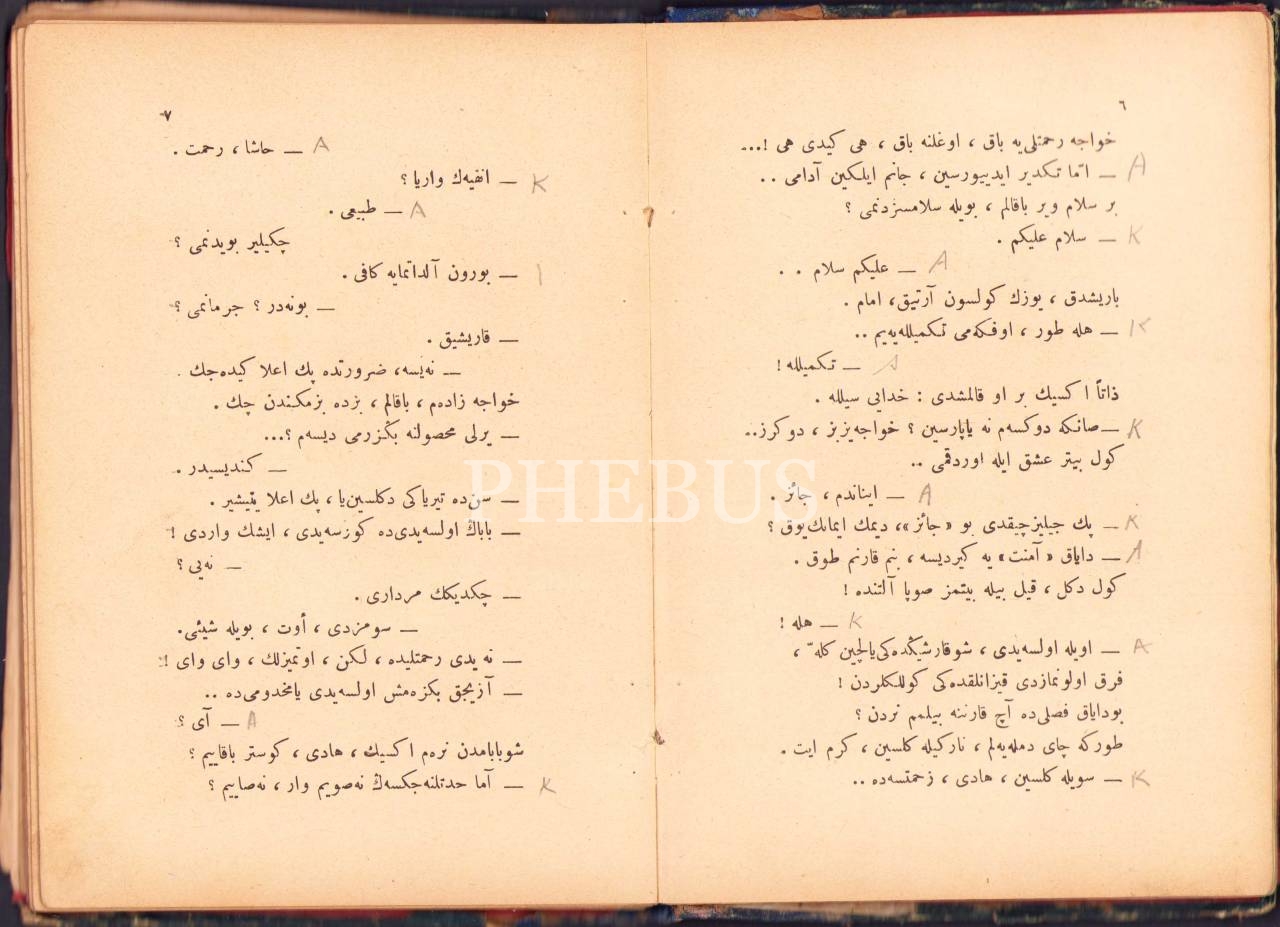 ٦
خواجه رحمتلی‌یه باق ، اوغلنه باق ، هی کیدی هی !...
A — امّا تکدیر ایدییورسین ، جانم ایلکین آدامی ..
بر سلام ویر باقالم ، بویله سلامسزدنمی ؟
K — سلام علیکم .
A — علیکم سلام . .
باریشدق ، یوزك کولسون آرتیق، امام .
K — هله طور ، اوفکه‌می تکمیلله‌یه‌یم ..
A — تکمیلله !
ذاتاً اکسیك بر او قالمشدی : خدایی سیلله .
K — صانکه دوکسه‌م نه یاپارسین ؟ خواجه‌یزبز ، دوکرز..
کول بیتر عشق ایله اوردقمی ..
A — ایناندم ، جائز .
K — پك جیلیزچیقدی بو «جائز»، دیمك ایمانك‌یوق ؟
A — دایاق «آمنت» یه کیردیسه ، بنم قارنم طوق .
کول دکل ، قیل بیله بیتمز صوپا آلتنده !
K — هله !
A — اویله اولسه‌یدی ، شوقارشیکده‌کی‌یالچین کله ،
فرق اولونمازدی قیزانلقده‌کی کوللکلردن !
بودایاق فصلی‌ده آچ قارننه بیلمم نردن ؟
طورکه چای دمله‌یه‌لم ، نارکیله کلسین ، کرم ایت .
K — سویله کلسین ، هادی ، زحمتسه‌ده ..
٧
A — حاشا ، رحمت .
K — انفیه‌ك واریا ؟
A — طبیعی .
چکیلیر بویدنمی ؟
— بورون آلداتمایه کافی .
— بونه‌در ؟ جرمانمی ؟
— قاریشیق .
— نه‌یسه، ضرورتده پك اعلا کیده‌جك .
خواجه زاده‌م ، باقالم ، بزده بزمکندن چك .
— یرلی محصولنه بکزرمی دیسه‌م ؟...
— کندیسیدر .
— سن‌ده تیریاکی دکلسین‌یا ، پك اعلا یتیشیر .
— باباك اولسه‌یدی‌ده کورسه‌یدی ، ایشك واردی !
— نه‌یی ؟
— چکدیکك مرداری .
— سومزدی ، أوت ، بویله شیئی.
— نه یدی رحمتلیده ، لکن ، اوتمیزلك ، وای وای !
— آزیجق بکزه‌مش اولسه‌یدی یامخدومی‌ده ..
A — آی ؟
شوبابامدن نره‌م اکسیك ، هادی ، کوستر باقاییم ؟
K — آما حدتلنه‌جکسه‌ك نه‌صویم وار ، نه‌صاییم ؟
PHEBUS